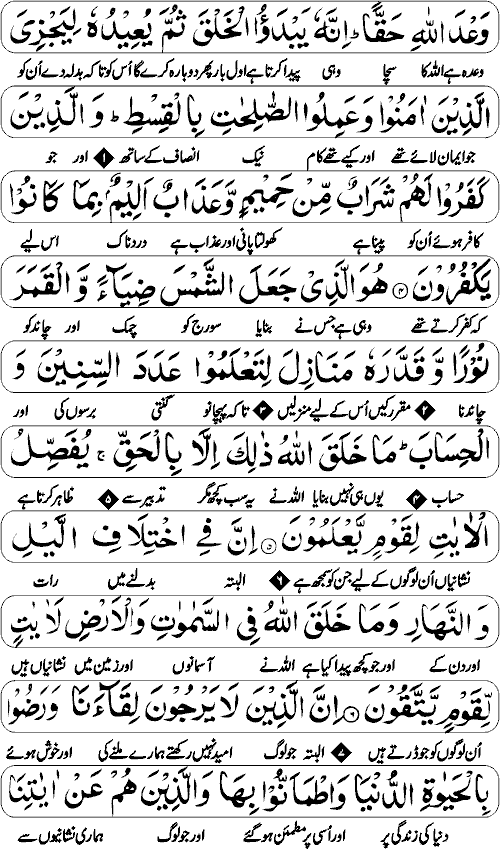 وَعْدَ اللّٰهِ حَقًّا ؕ اِنَّهٗ يَبْدَؤُا الْخَلْقَ ثُمَّ يُعِيْدُهٗ لِيَجْزِىَ
وعدہ ہے اللہ کا سچا وہی پیدا کرتا ہے اول بار پھر دوبارہ کرے گا اُس کو تا کہ بدلہ دے اُن کو
الَّذِيْنَ اٰمَنُوْا وَعَمِلُوا الصّٰلِحٰتِ بِالْقِسْطِ ؕ وَ الَّذِيْنَ
جو ایمان لائے تھے اور کیے تھے کام نیک انصاف کے ساتھ ۱ اور جو
كَفَرُوْا لَهُمْ شَرَابٌ مِّنْ حَمِيْمٍ وَّعَذَابٌ اَلِيْمٌۢ بِمَا كَانُوْا
کافر ہوئے اُن کو پینا ہے کھولتا پانی اور عذاب ہے دردناک اس لیے
يَكْفُرُوْنَ ۴ هُوَ الَّذِىْ جَعَلَ الشَّمْسَ ضِيَآءً وَّ الْقَمَرَ
کہ کفر کرتے تھے وہی ہے جس نے بنایا سورج کو چمک اور چاند کو
نُوْرًا وَّ قَدَّرَهٗ مَنَازِلَ لِتَعْلَمُوْا عَدَدَ السِّنِيْنَ وَ
چاندنا ۲ مقرر کیں اُس کے لیے منزلیں ۳ تا کہ پہچانو گنتی برسوں کی اور
الْحِسَابَ ؕ مَا خَلَقَ اللّٰهُ ذٰلِكَ اِلَّا بِالْحَقِّ ۚ يُفَصِّلُ
حساب ۴ یوں ہی نہیں بنایا اللہ نے یہ سب کچھ مگر تدبیر سے ۵ ظاہر کرتا ہے
الْاٰيٰتِ لِقَوْمٍ يَّعْلَمُوْنَ ۵ اِنَّ فِى اخْتِلَافِ الَّيْلِ
نشانیاں اُن لوگوں کے لیے جن کو سمجھ ہے ۶ البتہ بدلنے میں رات
وَ النَّهَارِ وَمَا خَلَقَ اللّٰهُ فِى السَّمٰوٰتِ وَالْاَرْضِ لَاٰيٰتٍ
اور دن کے اور جو کچھ پیدا کیا ہے اللہ نے آسمانوں اور زمین میں نشانیاں ہیں
لِّقَوْمٍ يَّتَّقُوْنَ ۶ اِنَّ الَّذِيْنَ لَا يَرْجُوْنَ لِقَآءَنَا وَرَضُوْا
اُن لوگوں کو جو ڈرتے ہیں ۷ البتہ جو لوگ امید نہیں رکھتے ہمارے ملنے کی اور خوش ہوئے
بِالْحَيٰوةِ الدُّنْيَا وَاطْمَاَنُّوْا بِهَا وَالَّذِيْنَ هُمْ عَنْ اٰيٰتِنَا
دنیا کی زندگی پر اور اُسی پر مطمئن ہو گئے اور جو لوگ ہماری نشانیوں سے